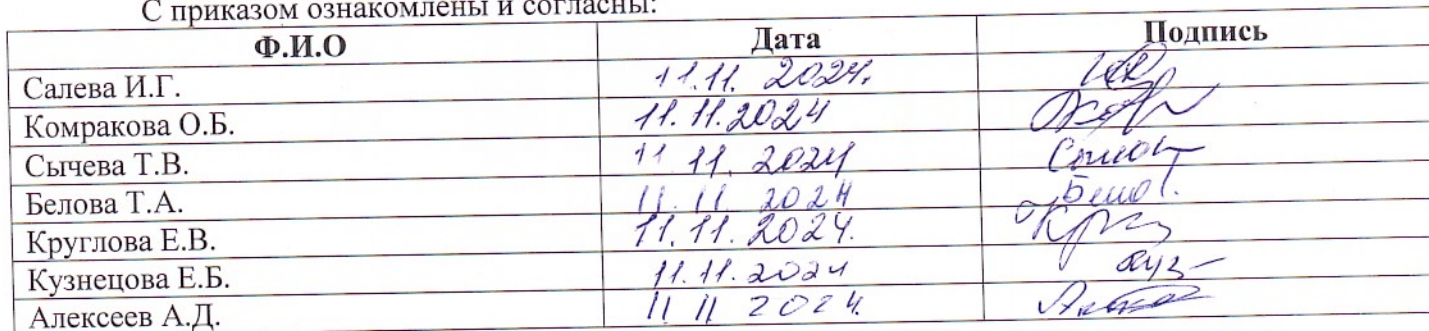 С приказом ознакомлены и согласны:
Ф.И.О Дата Подпись
Салева И.Г. 11.11. 2024.
Комракова О.Б. 11.11.2024
Сычева Т.В. 11 11. 2024
Белова Т.А. 11.11 2024
Круглова Е.В. 11.11.2024.
Кузнецова Е.Б. 11.11.2024
Алексеев А.Д. 11 11 2024.